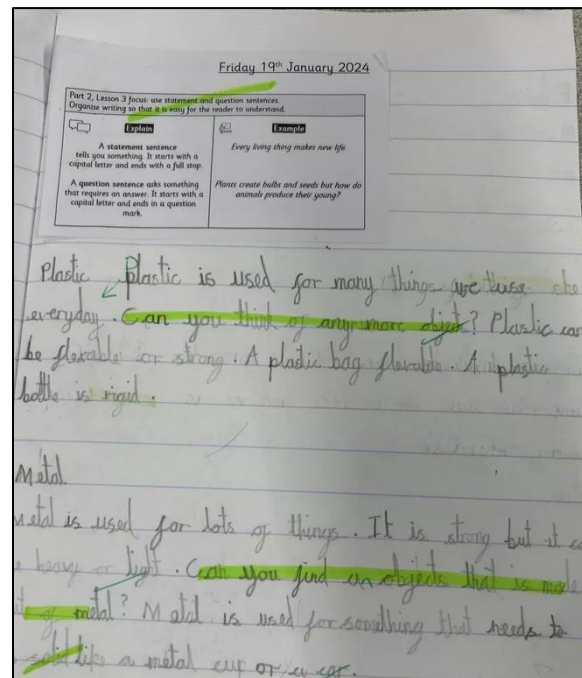 Friday 19th January 2024
Part 2, Lesson 3 focus: use statement and question sentences.
Organise writing so that it is easy for the reader to understand.
Explain
Example
A statement sentence
tells you something. It starts with a
capital letter and ends with a full stop.
Every living thing makes new life
A question sentence asks something
that requires an answer. It starts with a
capital letter and ends in a question
mark.
Plants create bulbs and seeds but how do
animals produce their young?
Plastic Plastic is used for many things
everyday. Can you think of any more objet? Plastic can
be flexable or strong. A plastic bag flexable. A plastic
bottle is rigid.
Metal
Metal is used for lots of things. It is strong but it
heavy or light. Can you find an objects that is made
of metal? Metal is used for something that needs to
solid like a metal cup or a car.